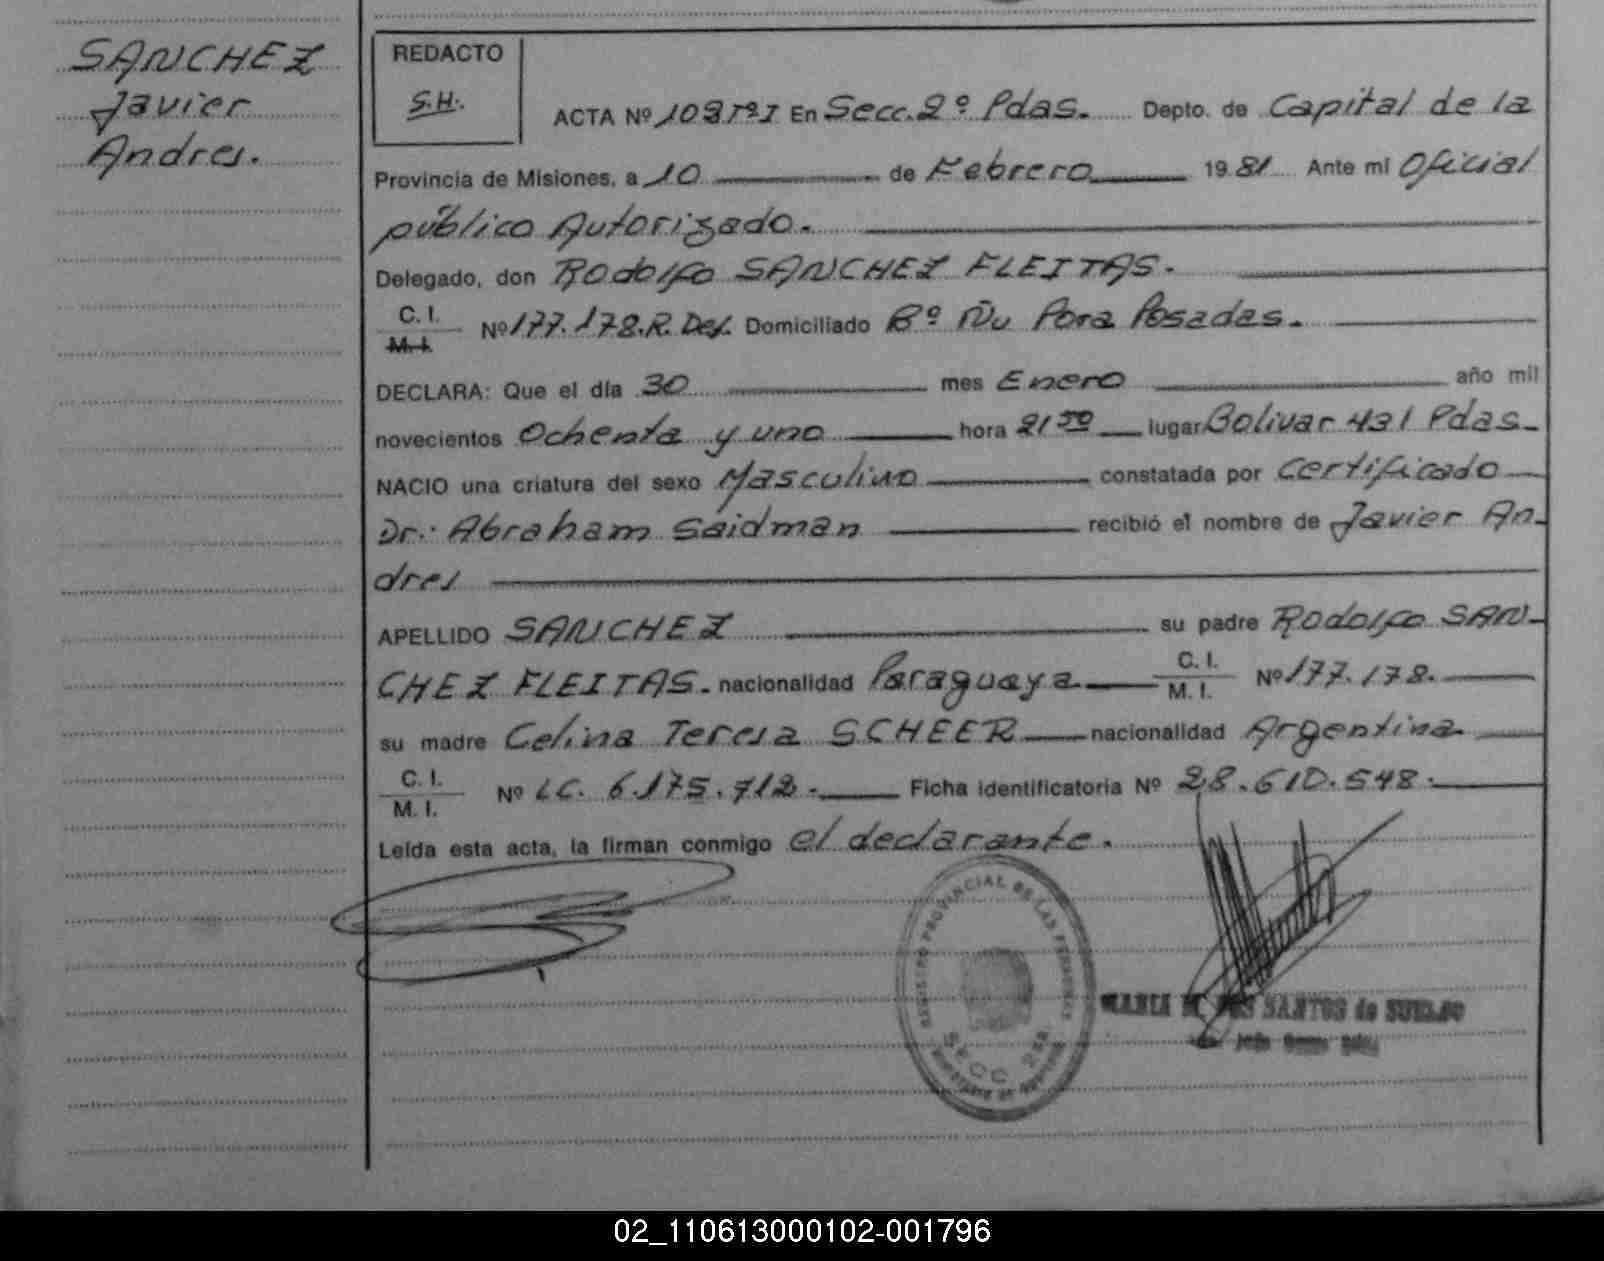 SANCHEZ
Javier
Andres.
REDACTO
S.H.
ACTA Nº 103 TºI En Secc. 2º Pdas. Depto. de Capital de la
Provincia de Misiones, a 10 de Febrero 1981 Ante mi Oficial
público Autorizado.
Delegado, don Rodolfo SANCHEZ FLEITAS.
C. I.
M. I.
Nº 177.178.R. Del. Domiciliado Bº Ñu Pora Posadas.
DECLARA: Que el día 30 mes Enero año mil
novecientos Ochenta y uno hora 21 50 lugar Bolivar 431 Pdas.
NACIO una criatura del sexo Masculino constatada por Certificado
Dr.: Abraham Saidman recibió el nombre de Javier An-
dres
APELLIDO SANCHEZ su padre Rodolfo SAN-
CHEZ FLEITAS. nacionalidad Paraguaya C. I. M. I. Nº 177.178.
su madre Celina Teresa SCHEER nacionalidad Argentina
C. I. M. I. Nº LC. 6.175.712. Ficha identificatoria Nº 28.610.548.
Leída esta acta, la firman conmigo el declarante.
REGISTRO PROVINCIAL DE LAS PERSONAS
SECC 2da
MARIA SANTOS de
02_110613000102-001796